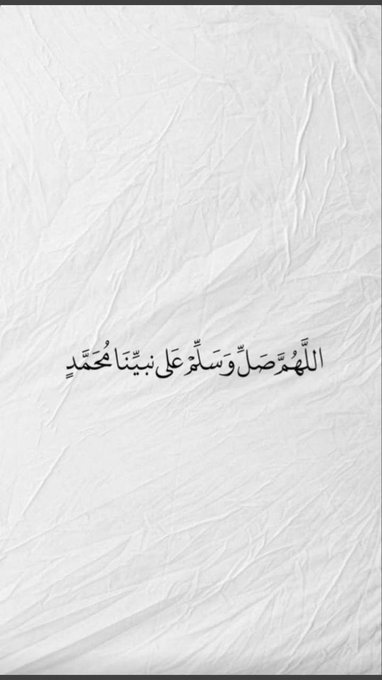 اللَّهُمَّ صَلِّ وَسَلِّمْ عَلى نبيِّنَا مُحَمَّدٍ